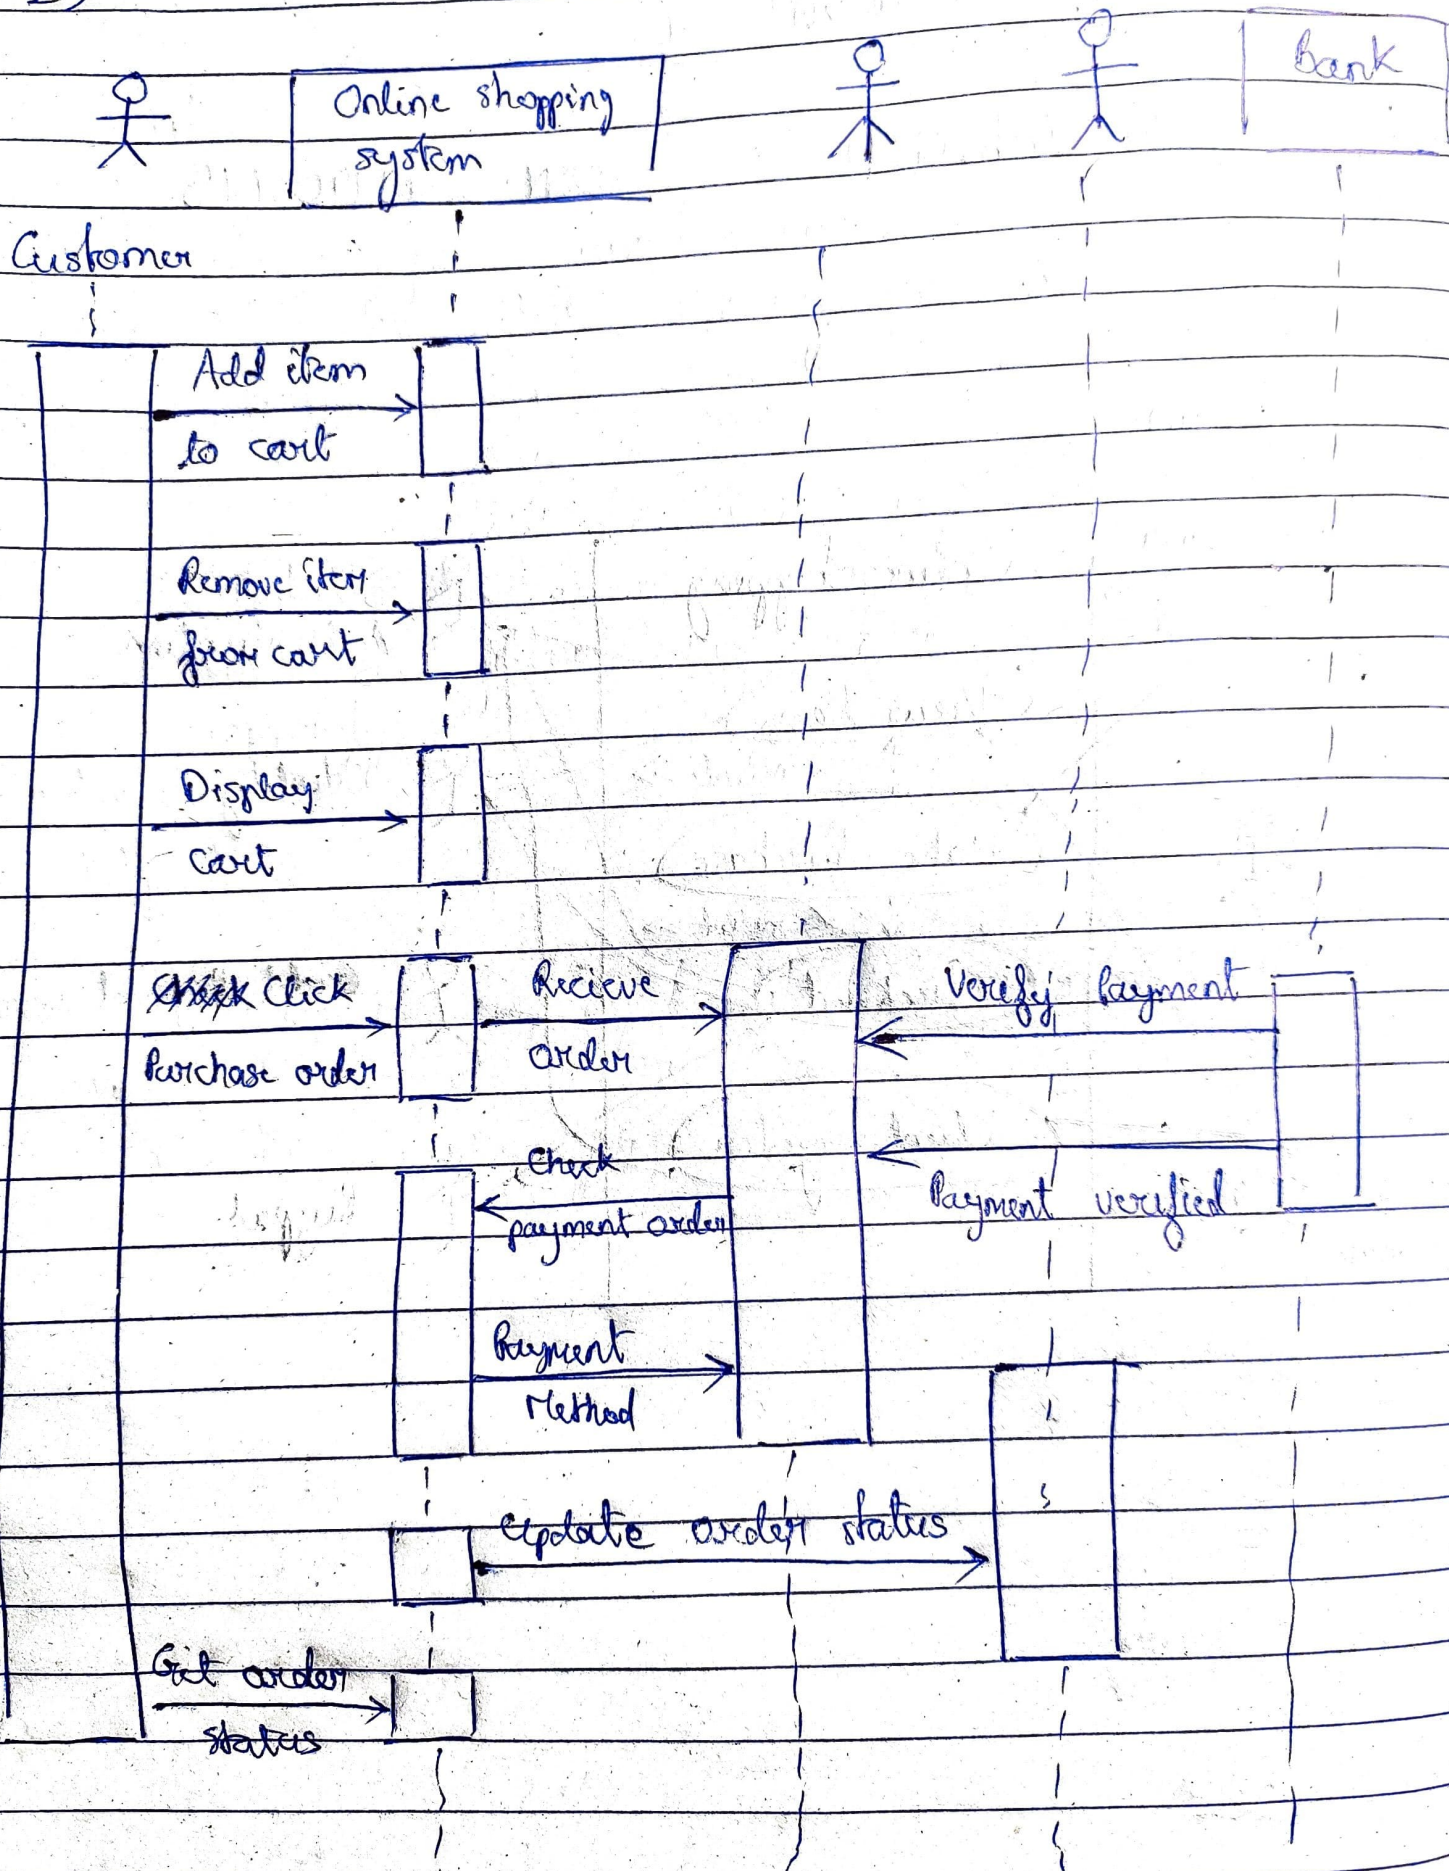 Bank
Online shopping
system
Customer
Add item
to cart
Remove item
from cart
Display
Cart
Click
Purchase order
Recieve
order
Verify Payment
Check
payment order
Payment verified
Payment
Method
Update order status
Get order
status